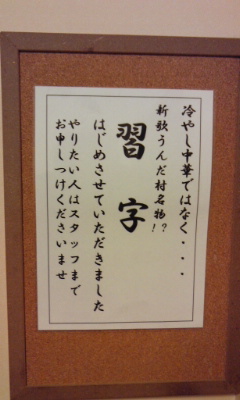 冷やし中華ではなく・・・
新歌うんだ村名物？！
習字
はじめさせていただきました
やりたい人はスタッフまで
お申しつけくださいませ